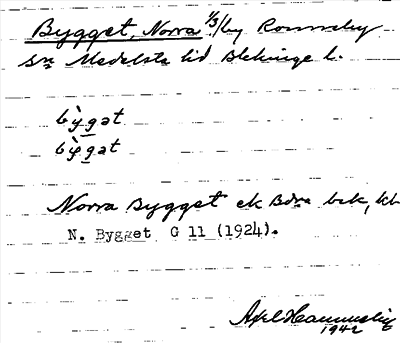 Bygget, Norra 1/3/by Ronneby
sn Medelsta hd Blekinge l.
bỳgət
bỳgət
Norra Bygget ek Bära bek, kb
N. Bygget G 11 (1924).
Axel Hammelin
1942